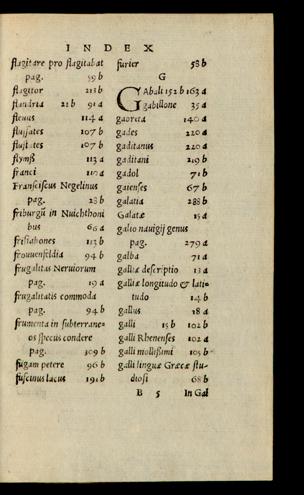 INDEX
flagitare pro flagitabat
pag. 59 b
flagitor 213 b
flandria 21 b 91 a
fleuus 114 a
flussates 107 b
flustates 107 b
113 a
franci
Franciscus Negelinus
pag. 28 b
friburgū in Nuichthoni
bus 66 a
frisiabones 113 b
frouuenfeldia 94 b
frugalitas Neruiorum
pag. 19 a
frugalitatis commoda
pag. 94 b
frumenta in subterrane-
os specus condere
pag. 109 b
fugam petere 96 b
fuscinus lacus 191 b
furier 58 b
G
GAbali 152 b 163 a
gabillone 35 a
gaoreta 140 a
gades 220 a
gaditanus 220 a
gaditani 219 b
gadol 71 b
gaienses 67 b
galatia 288 b
Galatæ 15 a
galio nauigij genus
pag. 279 a
galba 71 a
galliæ descriptio 13 a
galliæ longitudo & lati-
tudo 14 b
gallus 18 a
galli 15 b 102 b
galli Rhenenses 102 a
galli mollissimi 105 b
galli linguæ Græcæ stu-
diosi 68 b
B 5 in Gal